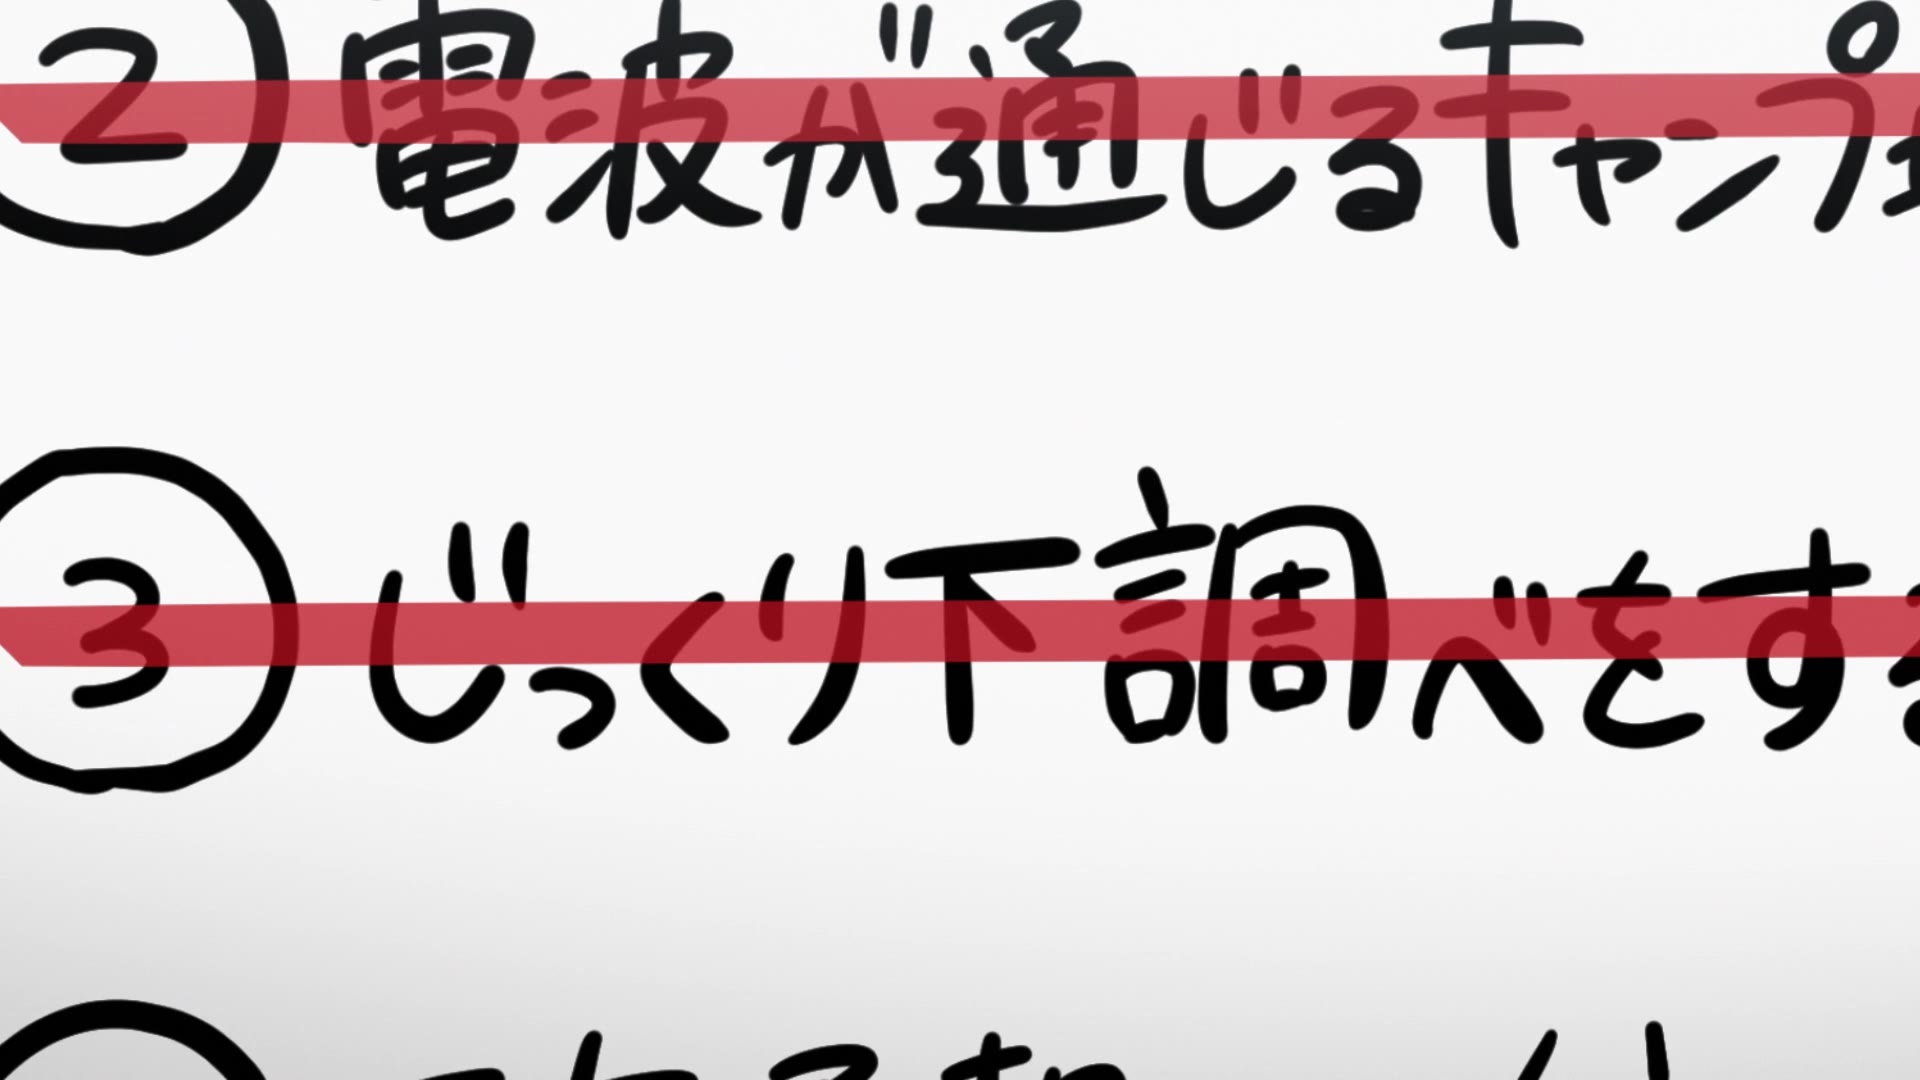 ②電波が通じるキャンプ
③じっくり下調べをする